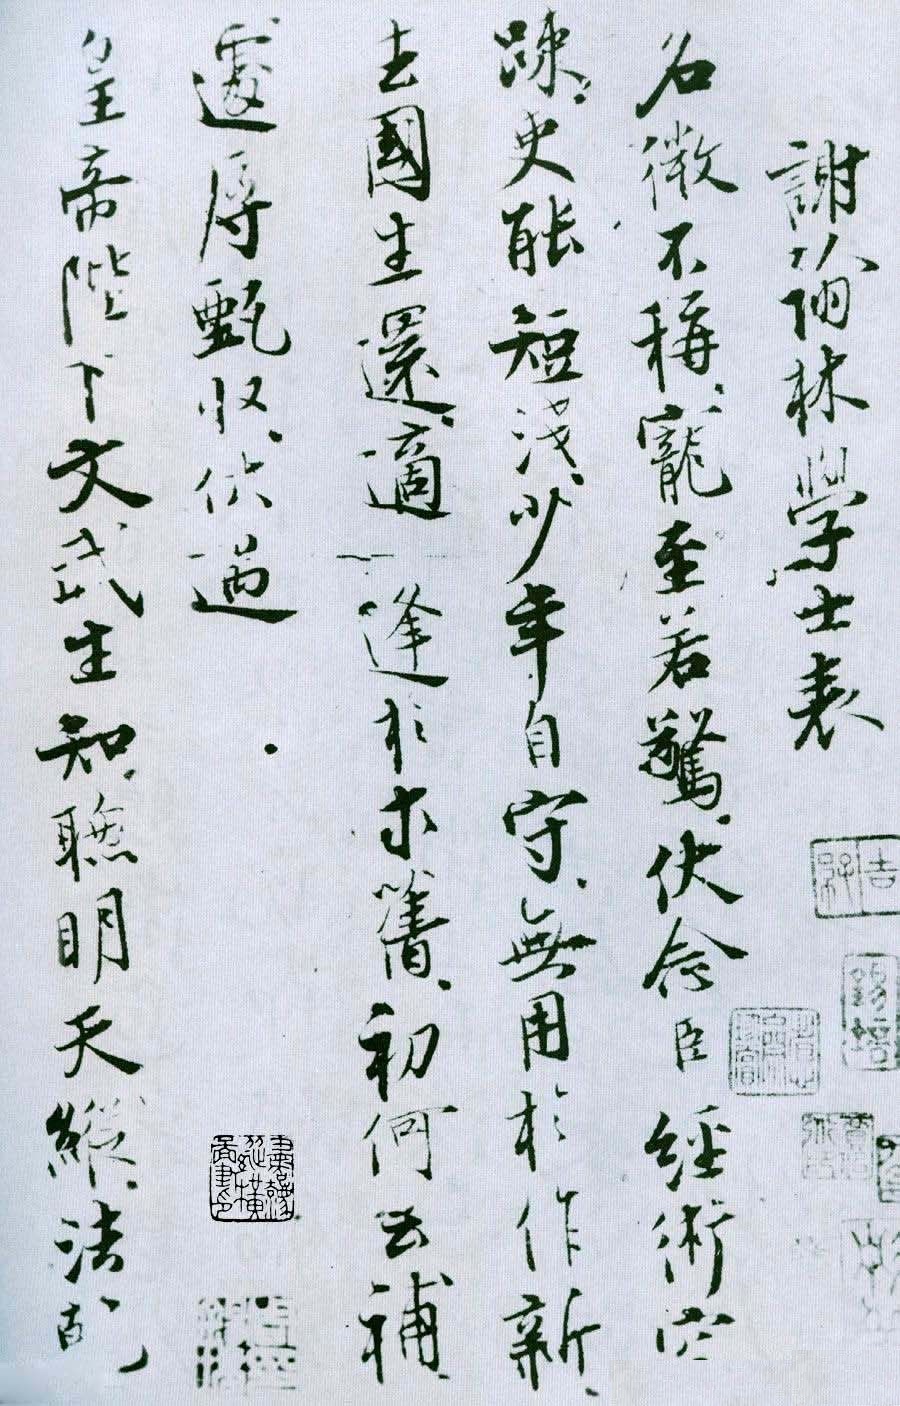 謝翰林學士表
名微不稱寵至若驚伏念臣經術空
疎史能短淺少年自守無用於作新
去國生還適逢於求舊初何云補
遽辱甄收伏遇
皇帝陛下文武生知聰明天縱法乾